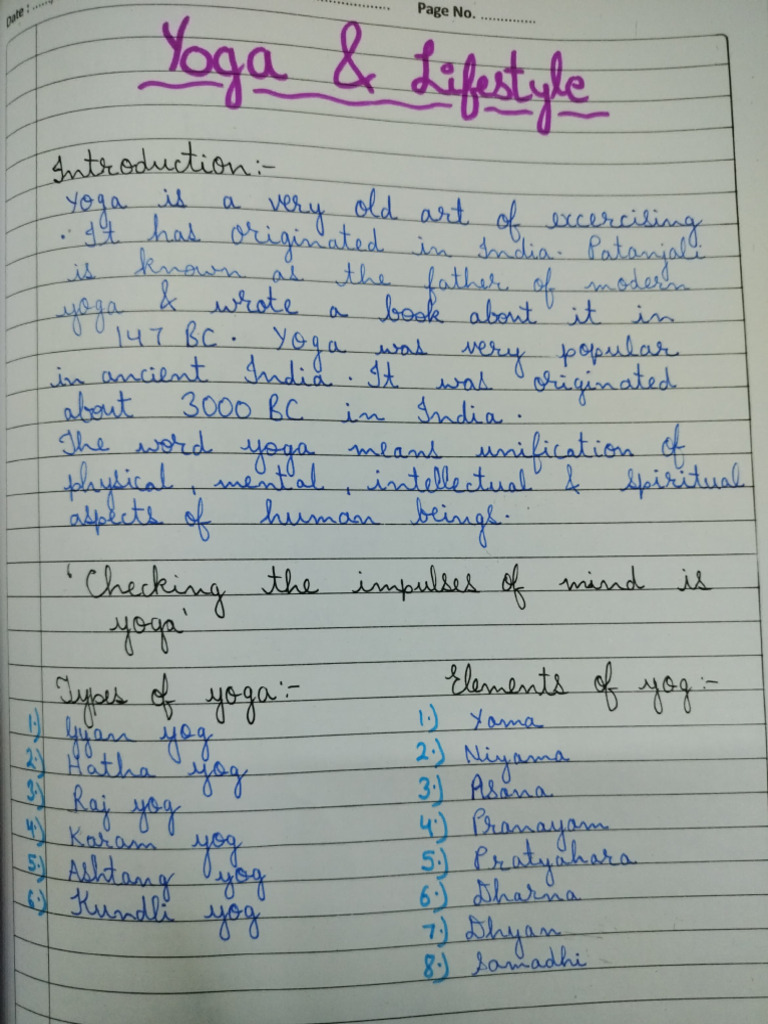 Date : ........
Page No. ................
Yoga & Lifestyle
Introduction:-
Yoga is a very old art of excercising
. It has originated in India. Patanjali
is known as the father of modern
yoga & wrote a book about it in
147 BC. Yoga was very popular
in ancient India. It was originated
about 3000 BC in India.
The word yoga means unification of
physical, mental, intellectual & spiritual
aspects of human beings.
'Checking the impulses of mind is
yoga'
Types of yoga:-
1.) Gyan yog
2.) Hatha yog
3.) Raj yog
4.) Karam yog
5.) Ashtang yog
6.) Kundli yog
Elements of yog:-
1.) Yama
2.) Niyama
3.) Asana
4.) Pranayam
5.) Pratyahara
6.) Dharna
7.) Dhyan
8.) Samadhi